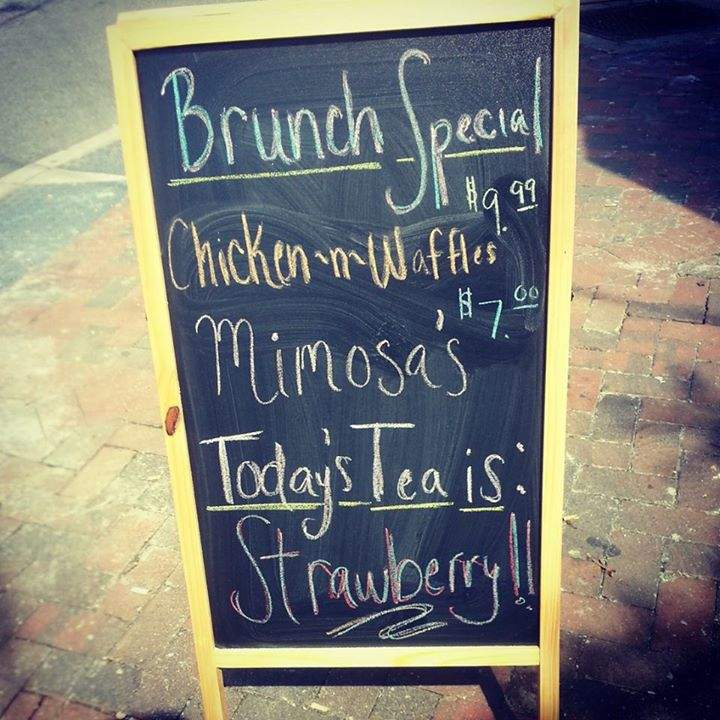 Brunch Special
$9.99
Chicken~n~Waffles
$7.00
Mimosa's
Today's Tea is:
Strawberry!!